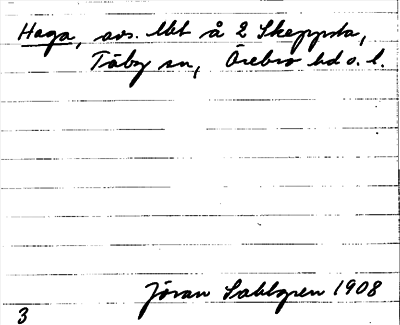 Haga, avs. lht å 2 Skeppsta,
Täby sn, Örebro hd o. l.
Jöran Sahlgren 1908
3